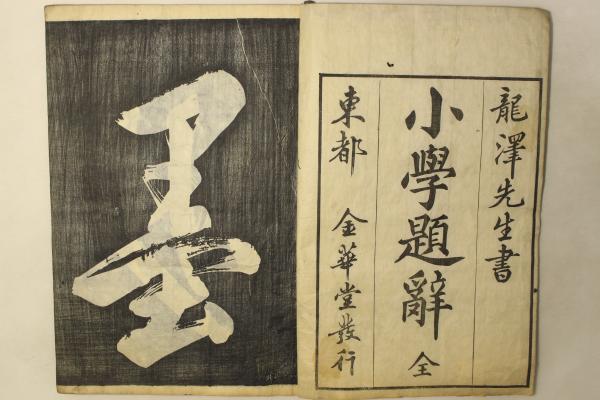 龍澤先生書
小學題辭 全
東都 金華堂發行